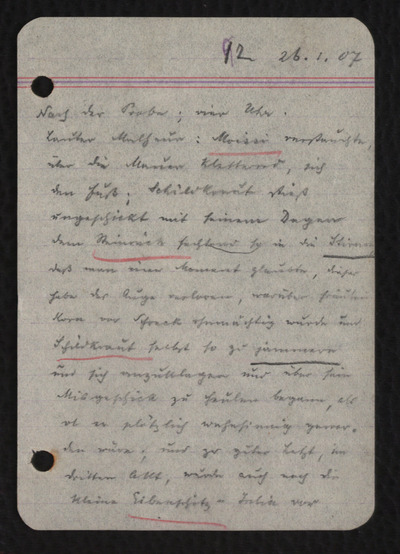 92 26.1.07
Nach der Probe; vier Uhr.
Lauter Malheur: Moissi verstauchte,
über die Mauer kletternd, sich
den Fuß; Schildkraut stieß
ungeschickt mit seinem Degen
dem Steinrück fechtend so in die Stirne
daß man einen Moment glaubte, dieser
habe das Auge verloren, worüber Fräulein
vor Schreck ohnmächtig wurde und
Schildkraut selbst so zu jammern
und sich anzuklagen und über sein
Misgeschick zu heulen begann, als
ob er plötzlich wahnsinnig gewor-
den wäre; und zu guter Letzt, im
dritten Akt, wurde auch noch die
kleine Eibenschitz – Julia vor